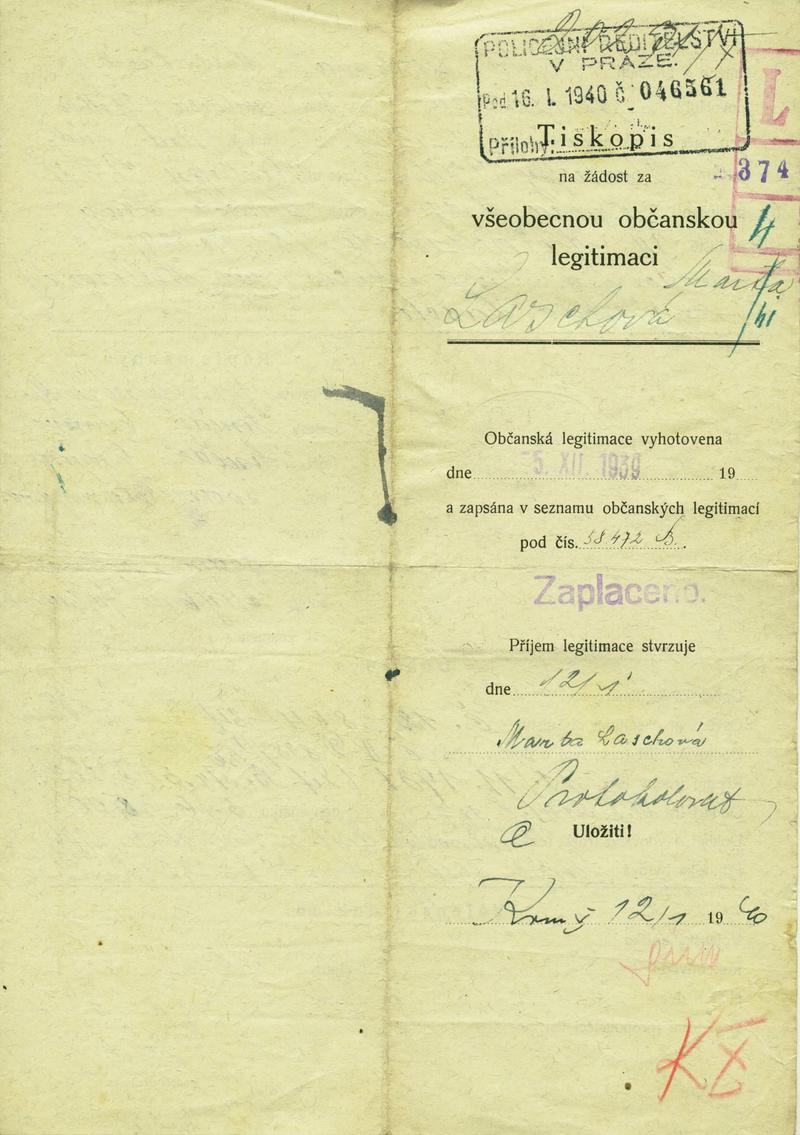 POLICEJNÍ ŘEDITELSTVÍ
V PRAZE.
Pod 16. I. 1940 č. 046561
Přílohy:
Tiskopis
na žádost za
všeobecnou občanskou
legitimaci
L
374
4
Marta
Laschová
Občanská legitimace vyhotovena
dne 5. XII. 1939 19
a zapsána v seznamu občanských legitimací
pod čís. 58472 B.
Zaplaceno.
Příjem legitimace stvrzuje
dne 12/1
Marta Laschová
Protokolovat
Uložiti!
12/1 1940
KX